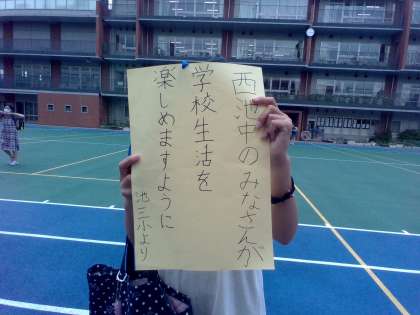 西池中のみなさんが
学校生活を
楽しめますように
池三小より